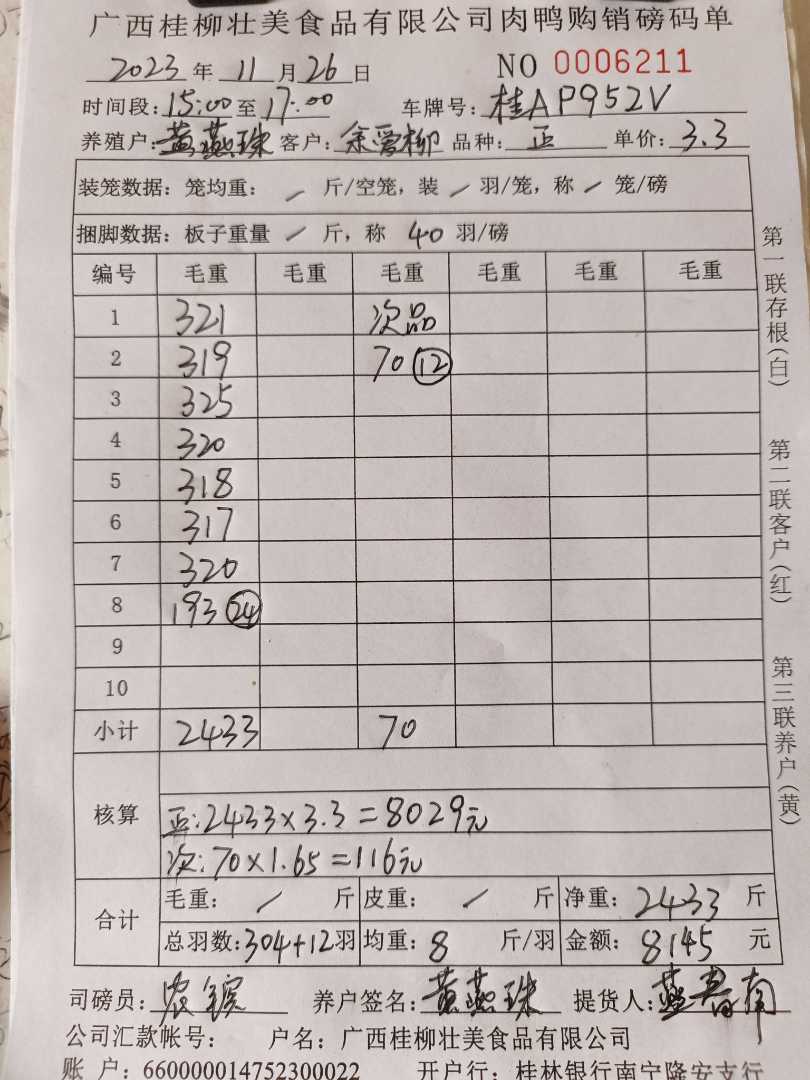 广西桂柳壮美食品有限公司肉鸭购销磅码单
2023年11月26日 NO 0006211
时间段:15:00至17:00 车牌号:桂AP952V
养殖户:黄燕珠 客户:余爱柳 品种:正 单价:3.3
装笼数据:笼均重: / 斤/空笼,装 / 羽/笼,称 / 笼/磅
捆脚数据:板子重量 / 斤,称 40 羽/磅
编号 毛重 毛重 毛重 毛重 毛重 毛重
1 321 次品
2 319 70 12
3 325
4 320
5 318
6 317
7 320
8 193 24
9
10
小计 2433 70
核算
正:2433×3.3=8029元
次:70×1.65=116元
合计
毛重: / 斤 皮重: / 斤 净重:2433 斤
总羽数:304+12羽 均重:8 斤/羽 金额:8145 元
司磅员:农 养户签名:黄燕珠 提货人:
公司汇款帐号: 户名:广西桂柳壮美食品有限公司
账 户:660000014752300022 开户行:桂林银行南宁隆安支行
第一联存根(白)
第二联客户(红)
第三联养户(黄)